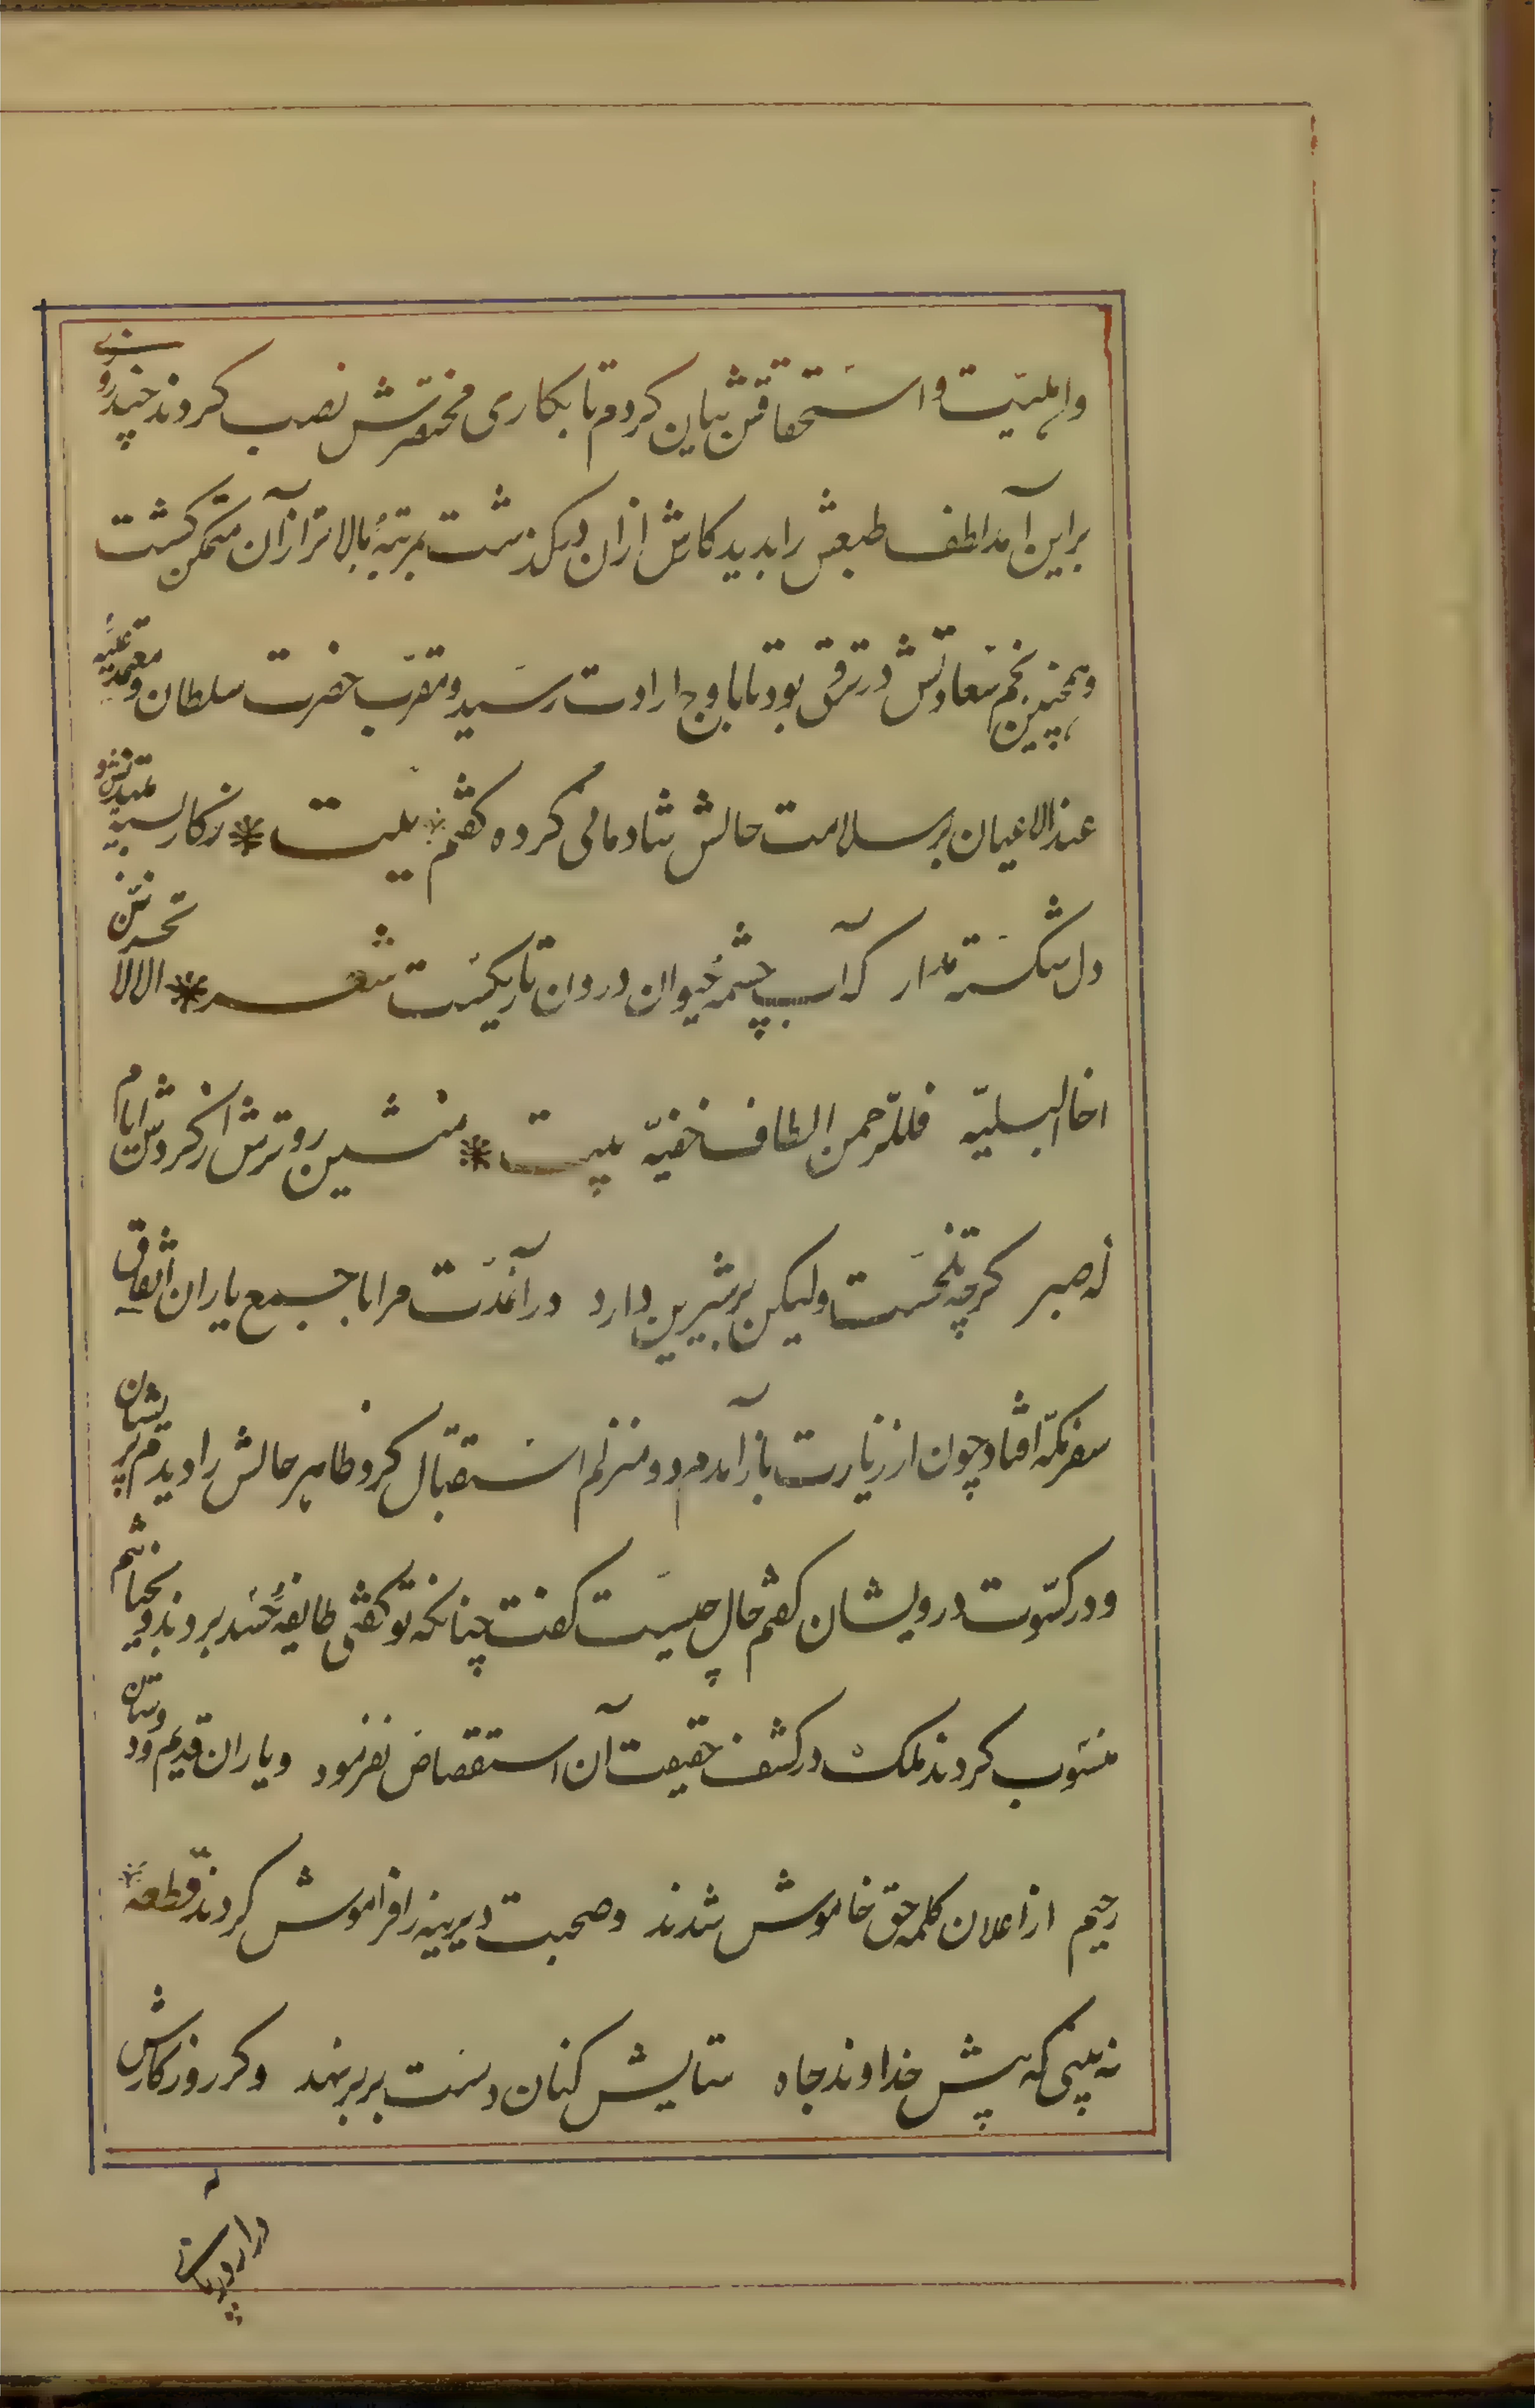 واهلیت و استحقاقش بیان کردم تا بکاری مختصرش نصب کردند چند روزی
براین آمد لطف طبعش را بدید کارش ازان درگذشت بمرتبهٔ بالاتر ازان متمکن گشت
وهمچنین نجم سعادتش در ترقی بود تا باوج ارادت رسید و مقرب حضرت سلطان و معتمد علیه
عند الاعیان بر سلامت حالش شادمانی کرده گفتم بیت زکار بسته میندیش و
دل شکسته مدار که آب چشمهٔ حیوان درون تاریکیست شعر الا لا تحزنن
اخا البلیه فللرحمن الطاف خفیه بیت منشین روترش از گردش ایام
که صبر گرچه تلخست ولیکن بر شیرین دارد در آنمدت مرا با جمع یاران اتفاق
سفر مکه افتاد چون از زیارت باز آمدم دو منزلم استقبال کرد ظاهر حالش را دیدم پریشان
و در کسوت درویشان گفتم حال چیست گفت چنانکه تو گفتی طایفهٔ حسد بردند و بخیانتم
منسوب کردند ملک در کشف حقیقت آن استقصا نفرمود و یاران قدیم و دوستان
رحیم از اعلان کلمه حق خاموش شدند و صحبت دیرینه را فراموش کردند قطعه
نه بینی که پیش خداوند جاه ستایش کنان دست بر بر نهند وگر روزگارش